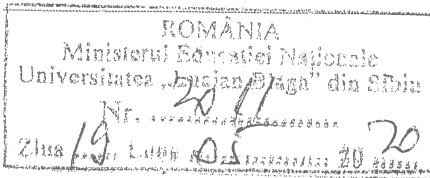 ROMÂNIA
Ministerul Educației Naționale
Universitatea „Lucian Blaga” din Sibiu
Nr. 2011
Ziua 19 Luna 05 20 20